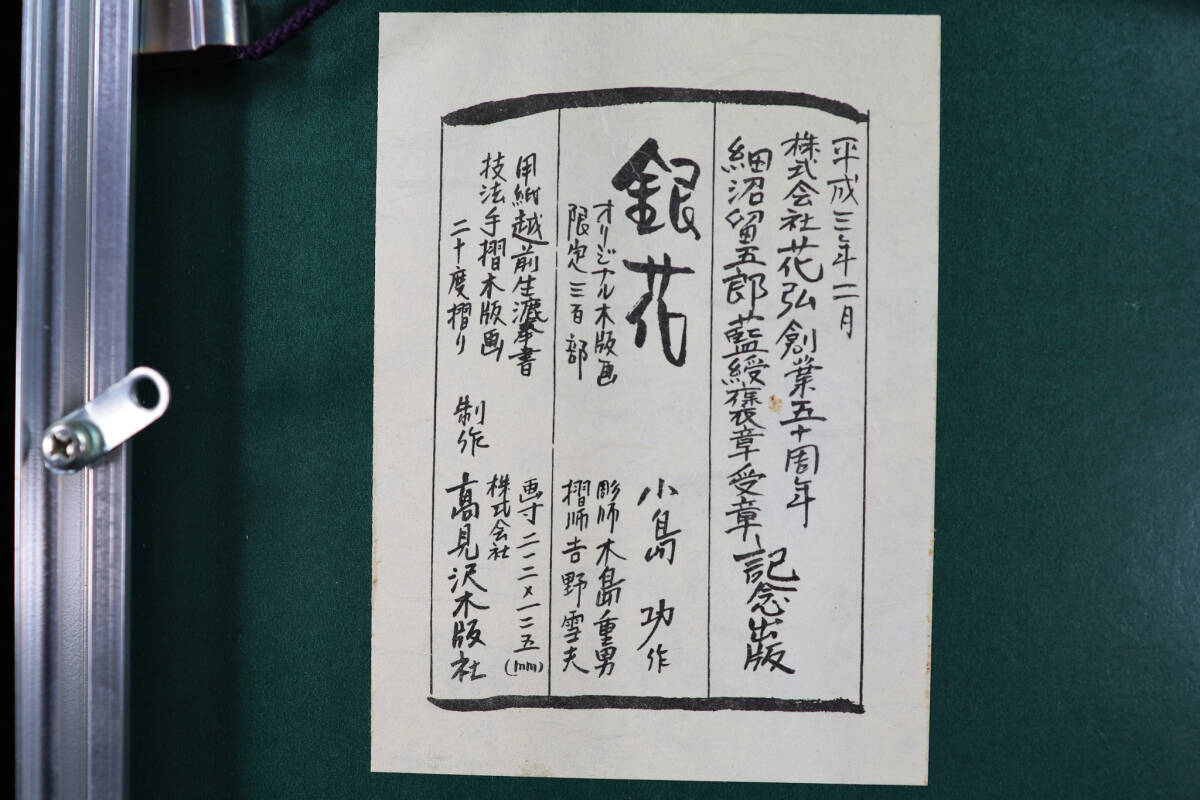 平成三年二月
株式会社花弘創業五十周年
細沼留五郎藍綬褒章受章
記念出版
銀花
小島功作
オリジナル木版画
限定三百部
彫師木島重男
摺師吉野雪夫
用紙越前生漉奉書
技法手摺木版画
二十度摺り
画寸二一二×一二五(mm)
制作
株式会社
高見沢木版社